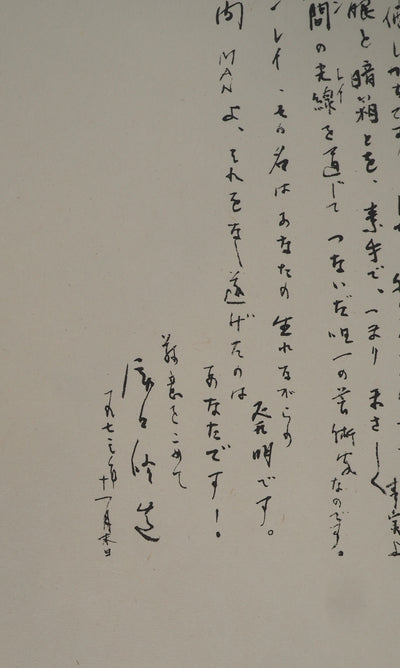 眼と暗箱とを、素手で、つまり まさしく
間の光線を通じて つないだ唯一の芸術家なのです。
レイ
レイ・その名はあなたの生れながらの
明です。
間 MAN よ、それをなし遂げたのは
あなたです！
敬意をこめて
瀧口修造
一九七三年十一月末日